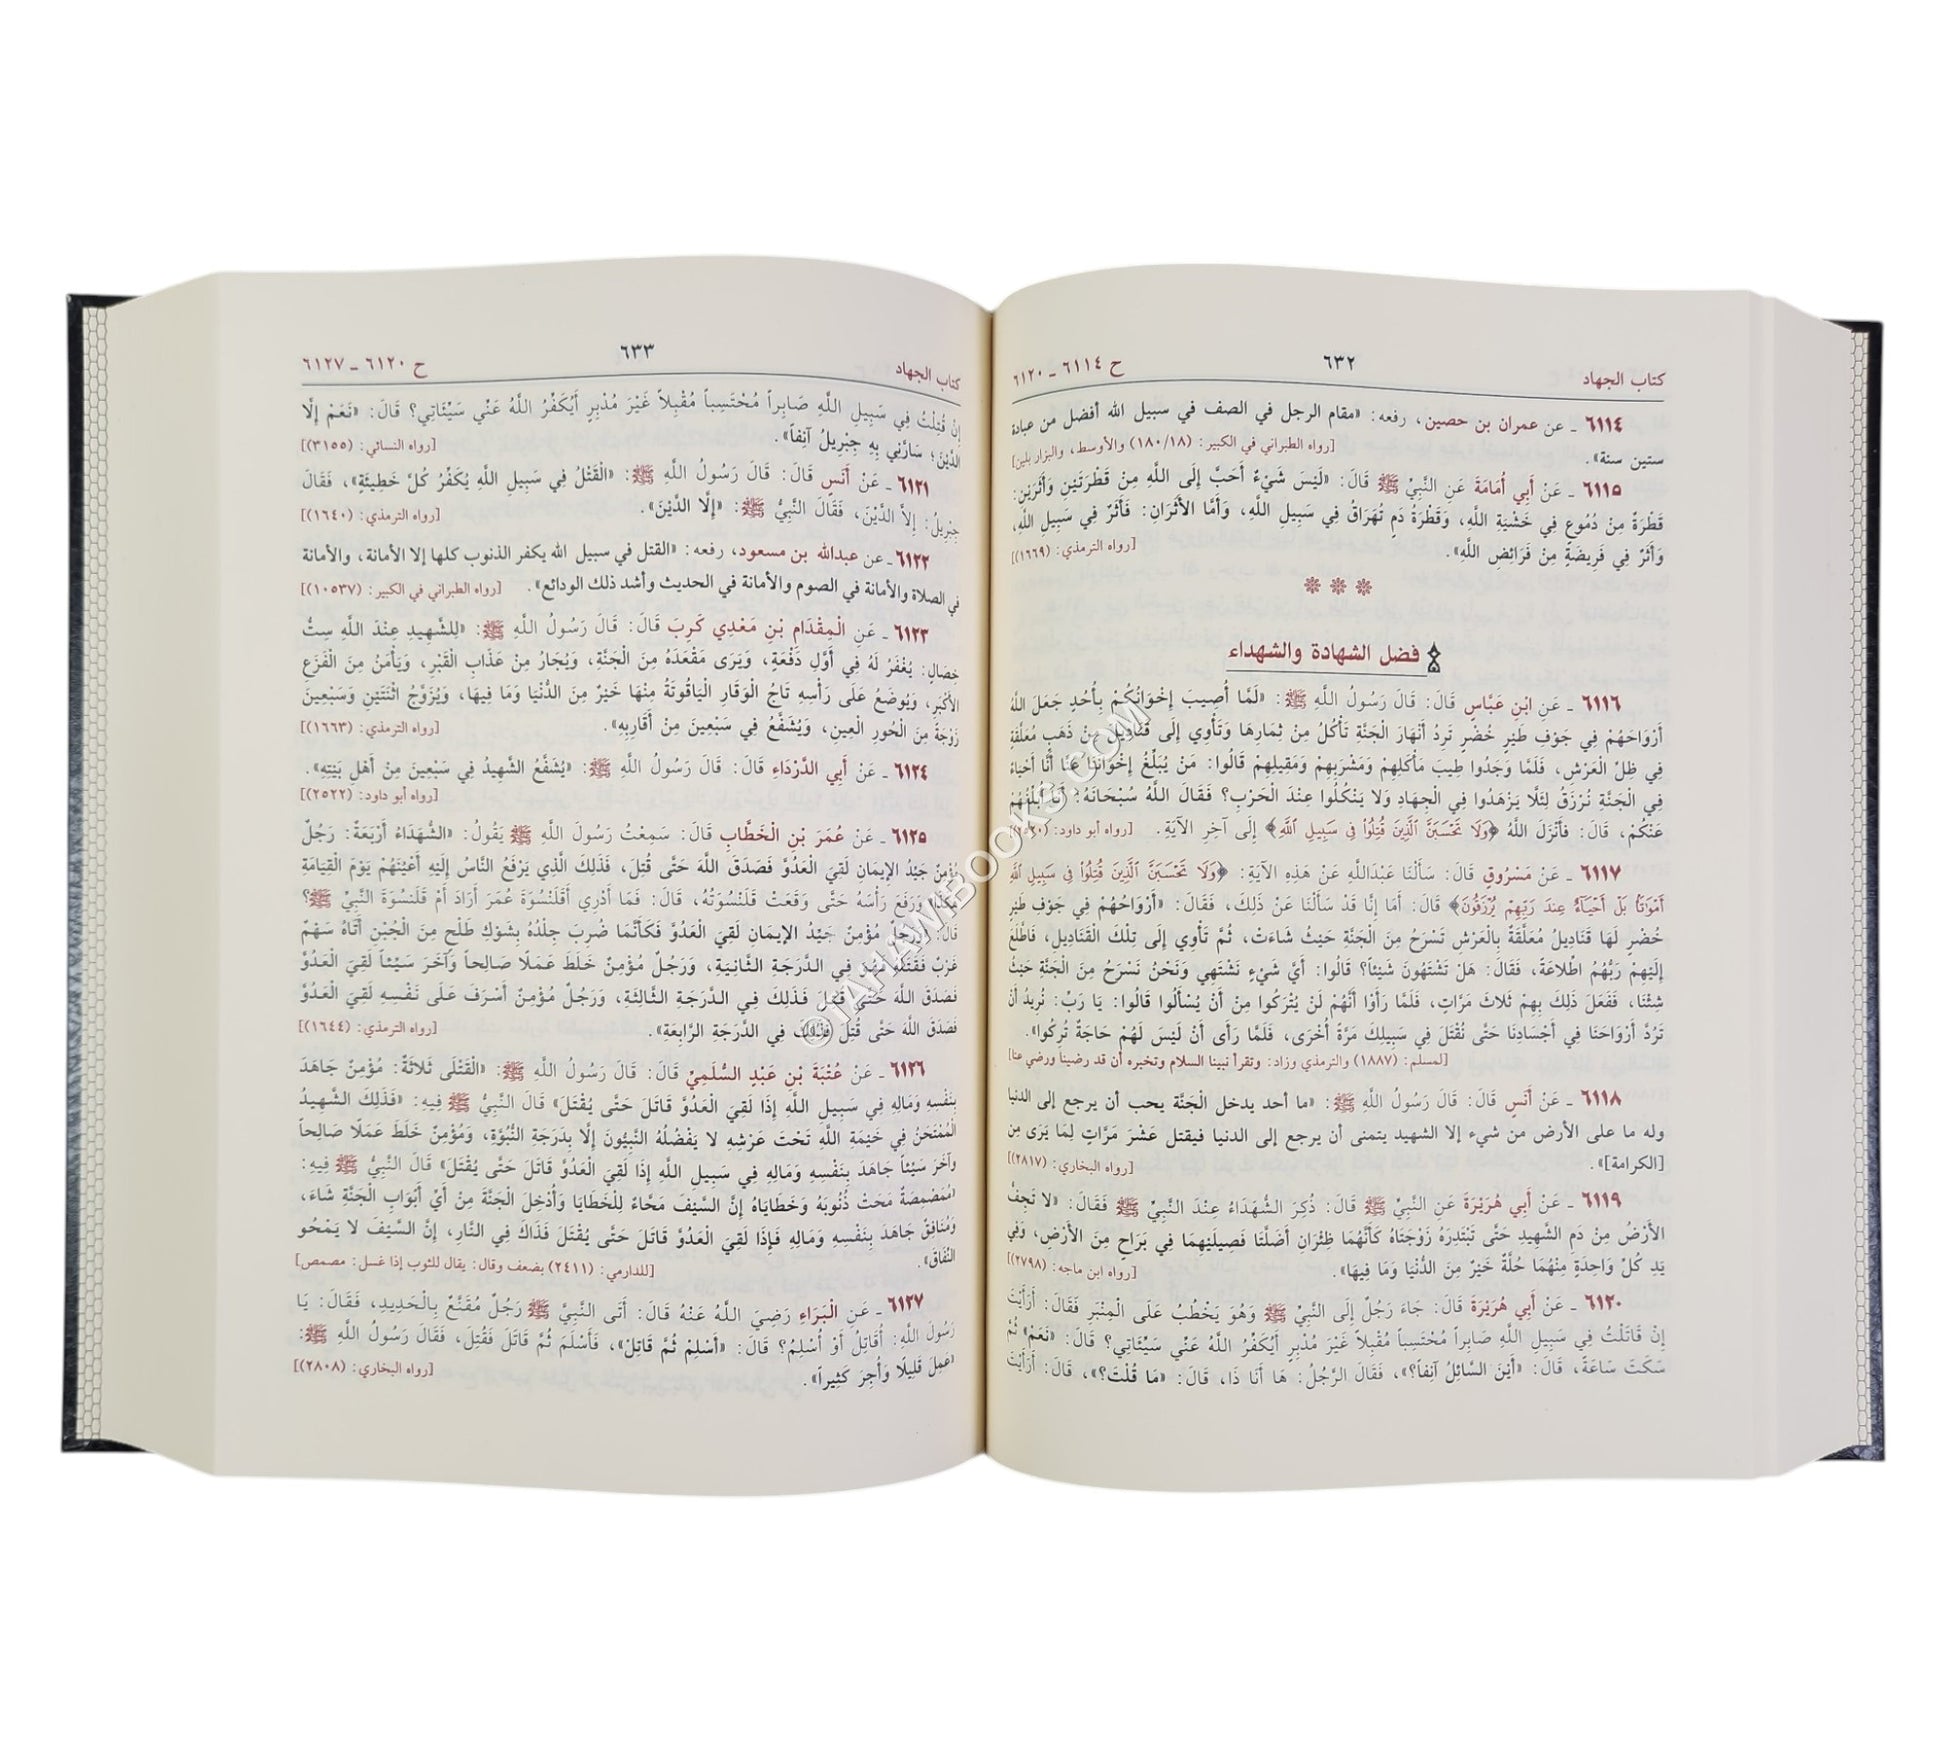 كتاب الجهاد
٦٣٢
ح ٦١١٤ ـ ٦١٢٠
٦١١٤ ـ عن عمران بن حصين، رفعه: «مقام الرجل في الصف في سبيل الله أفضل من عبادة
ستين سنة». [رواه الطبراني في الكبير: (١٨٠/١٨) والأوسط، والبزار بلين]
٦١١٥ ـ عَنْ أَبِي أُمَامَةَ عَنِ النَّبِيِّ ﷺ قَالَ: «لَيْسَ شَيْءٌ أَحَبَّ إِلَى اللَّهِ مِنْ قَطْرَتَيْنِ وَأَثَرَيْنِ:
قَطْرَةٌ مِنْ دُمُوعٍ فِي خَشْيَةِ اللَّهِ، وَقَطْرَةُ دَمٍ تُهَرَاقُ فِي سَبِيلِ اللَّهِ، وَأَمَّا الأَثَرَانِ: فَأَثَرٌ فِي سَبِيلِ اللَّهِ،
وَأَثَرٌ فِي فَرِيضَةٍ مِنْ فَرَائِضِ اللَّهِ». [رواه الترمذي: (١٦٦٩)]
فضل الشهادة والشهداء
٦١١٦ ـ عَنِ ابْنِ عَبَّاسٍ قَالَ: قَالَ رَسُولُ اللَّهِ ﷺ: «لَمَّا أُصِيبَ إِخْوَانُكُمْ بِأُحُدٍ جَعَلَ اللَّهُ
أَرْوَاحَهُمْ فِي جَوْفِ طَيْرٍ خُضْرٍ تَرِدُ أَنْهَارَ الْجَنَّةِ تَأْكُلُ مِنْ ثِمَارِهَا وَتَأْوِي إِلَى قَنَادِيلَ مِنْ ذَهَبٍ مُعَلَّقَةٍ
فِي ظِلِّ الْعَرْشِ، فَلَمَّا وَجَدُوا طِيبَ مَأْكَلِهِمْ وَمَشْرَبِهِمْ وَمَقِيلِهِمْ قَالُوا: مَنْ يُبَلِّغُ إِخْوَانَنَا عَنَّا أَنَّا أَحْيَاءٌ
فِي الْجَنَّةِ نُرْزَقُ لِئَلَّا يَزْهَدُوا فِي الْجِهَادِ وَلَا يَنْكُلُوا عِنْدَ الْحَرْبِ؟ فَقَالَ اللَّهُ سُبْحَانَهُ: أَنَا أُبَلِّغُهُمْ
عَنْكُمْ، قَالَ: فَأَنْزَلَ اللَّهُ ﴿وَلَا تَحْسَبَنَّ الَّذِينَ قُتِلُوا فِي سَبِيلِ اللَّهِ﴾ إِلَى آخِرِ الآيَةِ. [رواه أبو داود: (٢٥٢٠)]
٦١١٧ ـ عَنْ مَسْرُوقٍ قَالَ: سَأَلْنَا عَبْدَاللَّهِ عَنْ هَذِهِ الآيَةِ: ﴿وَلَا تَحْسَبَنَّ الَّذِينَ قُتِلُوا فِي سَبِيلِ اللَّهِ
أَمْوَاتًا بَلْ أَحْيَاءٌ عِندَ رَبِّهِمْ يُرْزَقُونَ﴾ قَالَ: أَمَا إِنَّا قَدْ سَأَلْنَا عَنْ ذَلِكَ، فَقَالَ: «أَرْوَاحُهُمْ فِي جَوْفِ طَيْرٍ
خُضْرٍ لَهَا قَنَادِيلُ مُعَلَّقَةٌ بِالْعَرْشِ تَسْرَحُ مِنَ الْجَنَّةِ حَيْثُ شَاءَتْ، ثُمَّ تَأْوِي إِلَى تِلْكَ الْقَنَادِيلِ، فَاطَّلَعَ
إِلَيْهِمْ رَبُّهُمُ اطِّلَاعَةً، فَقَالَ: هَلْ تَشْتَهُونَ شَيْئاً؟ قَالُوا: أَيَّ شَيْءٍ نَشْتَهِي وَنَحْنُ نَسْرَحُ مِنَ الْجَنَّةِ حَيْثُ
شِئْنَا، فَفَعَلَ ذَلِكَ بِهِمْ ثَلَاثَ مَرَّاتٍ، فَلَمَّا رَأَوْا أَنَّهُمْ لَنْ يُتْرَكُوا مِنْ أَنْ يُسْأَلُوا قَالُوا: يَا رَبِّ: نُرِيدُ أَنْ
تَرُدَّ أَرْوَاحَنَا فِي أَجْسَادِنَا حَتَّى نُقْتَلَ فِي سَبِيلِكَ مَرَّةً أُخْرَى، فَلَمَّا رَأَى أَنْ لَيْسَ لَهُمْ حَاجَةٌ تُرِكُوا».
[لمسلم: (١٨٨٧) والترمذي وزاد: وتقرأ نبينا السلام وتخبره أن قد رضينا ورضي عنا]
٦١١٨ ـ عَنْ أَنَسٍ قَالَ: قَالَ رَسُولُ اللَّهِ ﷺ: «ما أحد يدخل الجَنَّة يحب أن يرجع إلى الدنيا
وله ما على الأرض من شيء إلا الشهيد يتمنى أن يرجع إلى الدنيا فيقتل عَشْرَ مَرَّاتٍ لِمَا يَرَى مِن
[الكرامة]». [رواه البخاري: (٢٨١٧)]
٦١١٩ ـ عَنْ أَبِي هُرَيْرَةَ عَنِ النَّبِيِّ ﷺ قَالَ: ذُكِرَ الشُّهَدَاءُ عِنْدَ النَّبِيِّ ﷺ فَقَالَ: «لَا تَجِفُّ
الأَرْضُ مِنْ دَمِ الشَّهِيدِ حَتَّى تَبْتَدِرَهُ زَوْجَتَاهُ كَأَنَّهُمَا ظِئْرَانِ أَضَلَّتَا فَصِيلَيْهِمَا فِي بَرَاحٍ مِنَ الأَرْضِ، وَفِي
يَدِ كُلِّ وَاحِدَةٍ مِنْهُمَا حُلَّةٌ خَيْرٌ مِنَ الدُّنْيَا وَمَا فِيهَا». [رواه ابن ماجه: (٢٧٩٨)]
٦١٢٠ ـ عَنْ أَبِي هُرَيْرَةَ قَالَ: جَاءَ رَجُلٌ إِلَى النَّبِيِّ ﷺ وَهُوَ يَخْطُبُ عَلَى الْمِنْبَرِ فَقَالَ: أَرَأَيْتَ
إِنْ قَاتَلْتُ فِي سَبِيلِ اللَّهِ صَابِراً مُحْتَسِباً مُقْبِلاً غَيْرَ مُدْبِرٍ أَيُكَفِّرُ اللَّهُ عَنِّي سَيِّئَاتِي؟ قَالَ: «نَعَمْ» ثُمَّ
سَكَتَ سَاعَةً، قَالَ: «أَيْنَ السَّائِلُ آنِفاً؟»، فَقَالَ الرَّجُلُ: هَا أَنَا ذَا، قَالَ: «مَا قُلْتَ؟»، قَالَ: أَرَأَيْتَ
كتاب الجهاد
٦٣٣
ح ٦١٢٠ ـ ٦١٢٧
إِنْ قُتِلْتُ فِي سَبِيلِ اللَّهِ صَابِراً مُحْتَسِباً مُقْبِلاً غَيْرَ مُدْبِرٍ أَيُكَفِّرُ اللَّهُ عَنِّي سَيِّئَاتِي؟ قَالَ: «نَعَمْ إِلَّا
الدَّيْنَ؛ سَارَّنِي بِهِ جِبْرِيلُ آنِفاً». [رواه النسائي: (٣١٥٥)]
٦١٢١ ـ عَنْ أَنَسٍ قَالَ: قَالَ رَسُولُ اللَّهِ ﷺ: «الْقَتْلُ فِي سَبِيلِ اللَّهِ يُكَفِّرُ كُلَّ خَطِيئَةٍ»، فَقَالَ
جِبْرِيلُ: إِلاَّ الدَّيْنَ، فَقَالَ النَّبِيُّ ﷺ: «إِلَّا الدَّيْنَ». [رواه الترمذي: (١٦٤٠)]
٦١٢٢ ـ عن عبدالله بن مسعود، رفعه: «القتل في سبيل الله يكفر الذنوب كلها إلا الأمانة، والأمانة
في الصلاة والأمانة في الصوم والأمانة في الحديث وأشد ذلك الودائع». [رواه الطبراني في الكبير: (١٠٥٣٧)]
٦١٢٣ ـ عَنِ الْمِقْدَامِ بْنِ مَعْدِي كَرِبَ قَالَ: قَالَ رَسُولُ اللَّهِ ﷺ: «لِلشَّهِيدِ عِنْدَ اللَّهِ سِتُّ
خِصَالٍ: يُغْفَرُ لَهُ فِي أَوَّلِ دَفْعَةٍ، وَيَرَى مَقْعَدَهُ مِنَ الْجَنَّةِ، وَيُجَارُ مِنْ عَذَابِ الْقَبْرِ، وَيَأْمَنُ مِنَ الْفَزَعِ
الأَكْبَرِ، وَيُوضَعُ عَلَى رَأْسِهِ تَاجُ الْوَقَارِ الْيَاقُوتَةُ مِنْهَا خَيْرٌ مِنَ الدُّنْيَا وَمَا فِيهَا، وَيُزَوَّجُ اثْنَتَيْنِ وَسَبْعِينَ
زَوْجَةً مِنَ الْحُورِ الْعِينِ، وَيُشَفَّعُ فِي سَبْعِينَ مِنْ أَقَارِبِهِ». [رواه الترمذي: (١٦٦٣)]
٦١٢٤ ـ عَنْ أَبِي الدَّرْدَاءِ قَالَ: قَالَ رَسُولُ اللَّهِ ﷺ: «يُشَفَّعُ الشَّهِيدُ فِي سَبْعِينَ مِنْ أَهْلِ بَيْتِهِ».
[رواه أبو داود: (٢٥٢٢)]
٦١٢٥ ـ عَنْ عُمَرَ بْنِ الْخَطَّابِ قَالَ: سَمِعْتُ رَسُولَ اللَّهِ ﷺ يَقُولُ: «الشُّهَدَاءُ أَرْبَعَةٌ: رَجُلٌ
مُؤْمِنٌ جَيِّدُ الإِيمَانِ لَقِيَ الْعَدُوَّ فَصَدَقَ اللَّهَ حَتَّى قُتِلَ، فَذَلِكَ الَّذِي يَرْفَعُ النَّاسُ إِلَيْهِ أَعْيُنَهُمْ يَوْمَ الْقِيَامَةِ
هَكَذَا وَرَفَعَ رَأْسَهُ حَتَّى وَقَعَتْ قَلَنْسُوَتُهُ، قَالَ: فَمَا أَدْرِي أَقَلَنْسُوَةَ عُمَرَ أَرَادَ أَمْ قَلَنْسُوَةَ النَّبِيِّ ﷺ؟
قَالَ: وَرَجُلٌ مُؤْمِنٌ جَيِّدُ الإِيمَانِ لَقِيَ الْعَدُوَّ فَكَأَنَّمَا ضُرِبَ جِلْدُهُ بِشَوْكِ طَلْحٍ مِنَ الْجُبْنِ أَتَاهُ سَهْمٌ
غَرْبٌ فَقَتَلَهُ فَهُوَ فِي الدَّرَجَةِ الثَّانِيَةِ، وَرَجُلٌ مُؤْمِنٌ خَلَطَ عَمَلًا صَالِحاً وَآخَرَ سَيِّئاً لَقِيَ الْعَدُوَّ
فَصَدَقَ اللَّهَ حَتَّى قُتِلَ فَذَلِكَ فِي الدَّرَجَةِ الثَّالِثَةِ، وَرَجُلٌ مُؤْمِنٌ أَسْرَفَ عَلَى نَفْسِهِ لَقِيَ الْعَدُوَّ
فَصَدَقَ اللَّهَ حَتَّى قُتِلَ فَذَلِكَ فِي الدَّرَجَةِ الرَّابِعَةِ». [رواه الترمذي: (١٦٤٤)]
٦١٢٦ ـ عَنْ عُتْبَةَ بْنِ عَبْدٍ السُّلَمِيِّ قَالَ: قَالَ رَسُولُ اللَّهِ ﷺ: «الْقَتْلَى ثَلَاثَةٌ: مُؤْمِنٌ جَاهَدَ
بِنَفْسِهِ وَمَالِهِ فِي سَبِيلِ اللَّهِ إِذَا لَقِيَ الْعَدُوَّ قَاتَلَ حَتَّى يُقْتَلَ» قَالَ النَّبِيُّ ﷺ فِيهِ: «فَذَلِكَ الشَّهِيدُ
الْمُمْتَحَنُ فِي خَيْمَةِ اللَّهِ تَحْتَ عَرْشِهِ لَا يَفْضُلُهُ النَّبِيُّونَ إِلَّا بِدَرَجَةِ النُّبُوَّةِ، وَمُؤْمِنٌ خَلَطَ عَمَلًا صَالِحاً
وَآخَرَ سَيِّئاً جَاهَدَ بِنَفْسِهِ وَمَالِهِ فِي سَبِيلِ اللَّهِ إِذَا لَقِيَ الْعَدُوَّ قَاتَلَ حَتَّى يُقْتَلَ» قَالَ النَّبِيُّ ﷺ فِيهِ:
«مُمَصْمِصَةٌ مَحَتْ ذُنُوبَهُ وَخَطَايَاهُ إِنَّ السَّيْفَ مَحَّاءٌ لِلْخَطَايَا وَأُدْخِلَ الْجَنَّةَ مِنْ أَيِّ أَبْوَابِ الْجَنَّةِ شَاءَ،
وَمُنَافِقٌ جَاهَدَ بِنَفْسِهِ وَمَالِهِ فَإِذَا لَقِيَ الْعَدُوَّ قَاتَلَ حَتَّى يُقْتَلَ فَذَاكَ فِي النَّارِ، إِنَّ السَّيْفَ لَا يَمْحُو
النِّفَاقَ». [للدارمي: (٢٤١١) بضعف وقال: يقال للثوب إذا غسل: مصمص]
٦١٢٧ ـ عَنِ الْبَرَاءِ رَضِيَ اللَّهُ عَنْهُ قَالَ: أَتَى النَّبِيَّ ﷺ رَجُلٌ مُقَنَّعٌ بِالْحَدِيدِ، فَقَالَ: يَا
رَسُولَ اللَّهِ: أُقَاتِلُ أَوْ أُسْلِمُ؟ قَالَ: «أَسْلِمْ ثُمَّ قَاتِلْ»، فَأَسْلَمَ ثُمَّ قَاتَلَ فَقُتِلَ، فَقَالَ رَسُولُ اللَّهِ ﷺ:
«عَمِلَ قَلِيلًا وَأُجِرَ كَثِيراً». [رواه البخاري: (٢٨٠٨)]